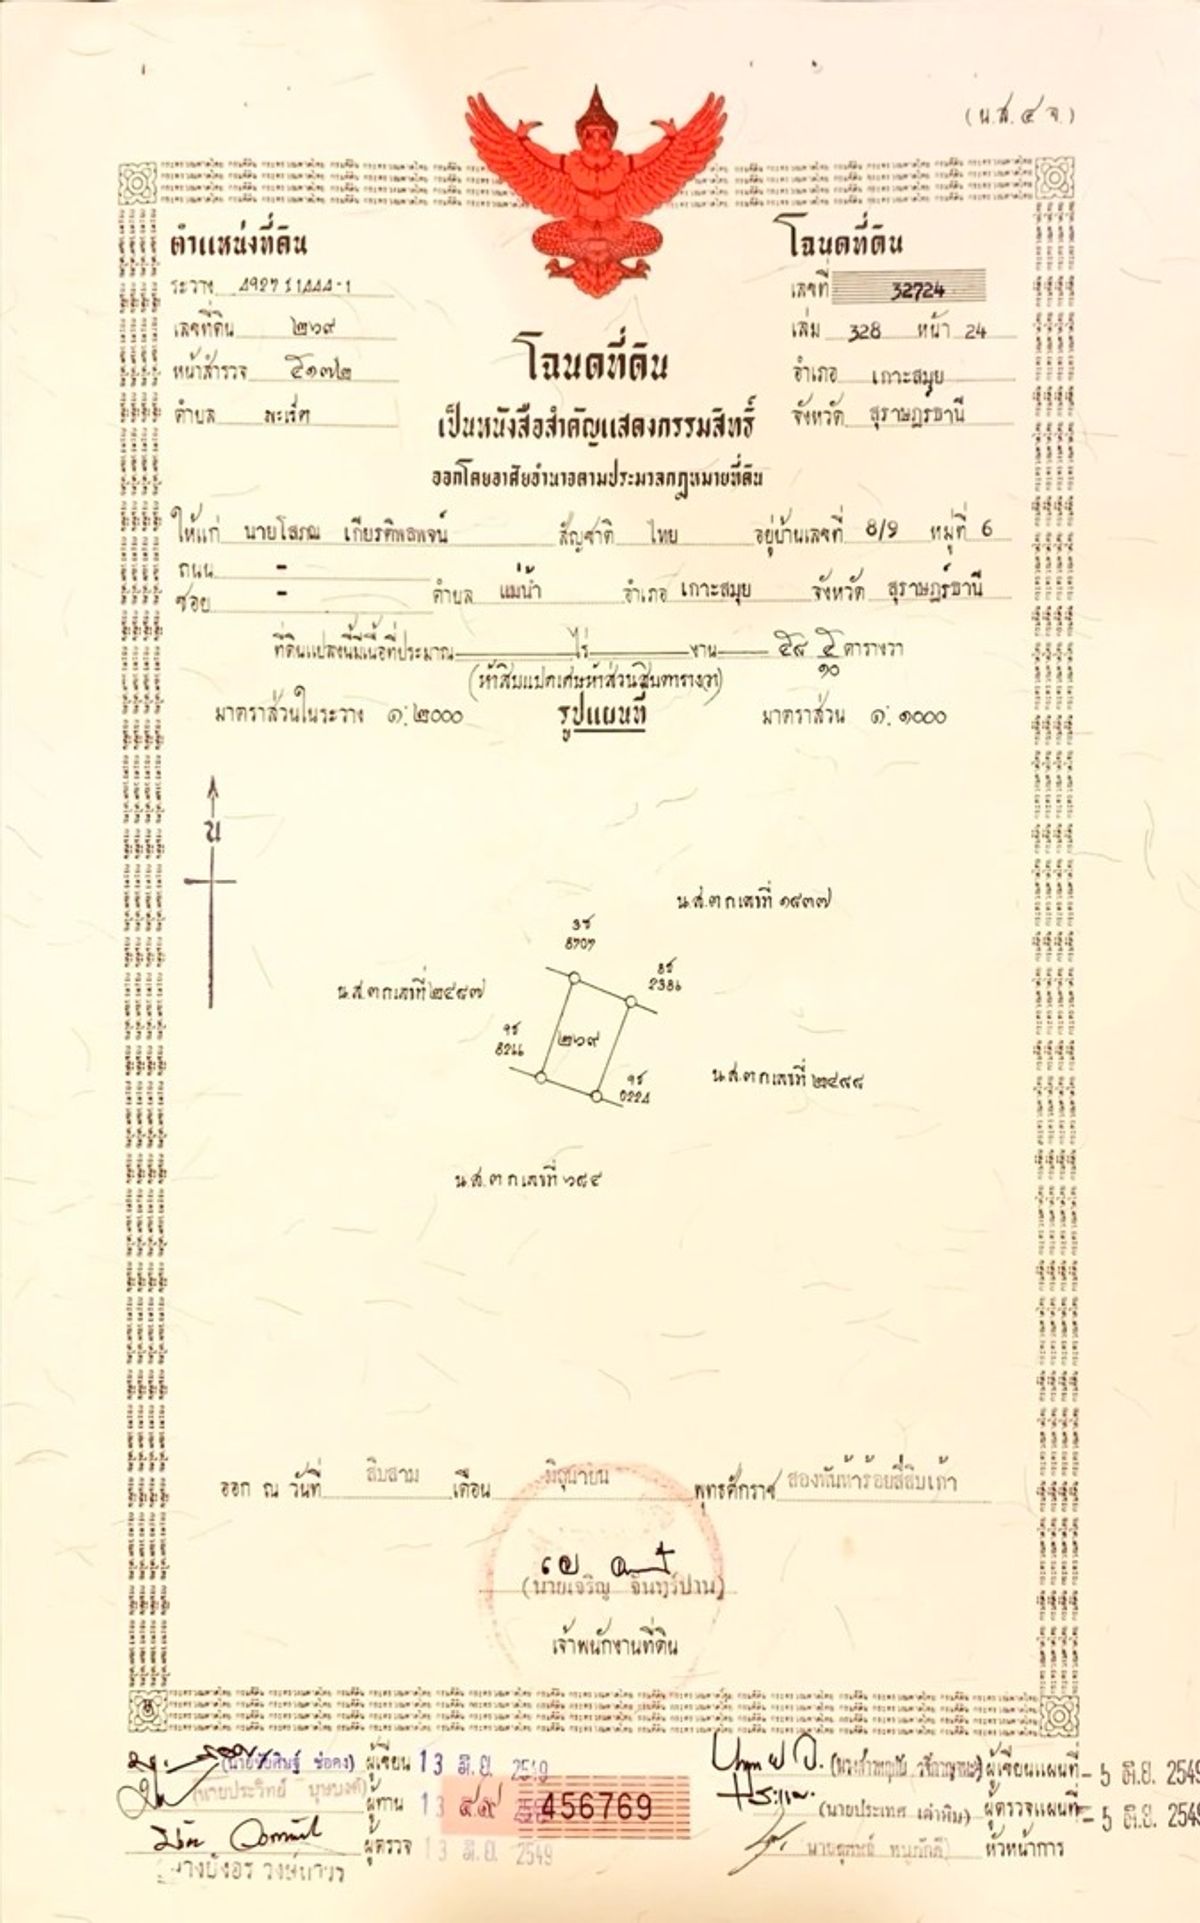 (น.ส. ๔ จ.)
ตำแหน่งที่ดิน
ระวาง 4927 I 1444-1
เลขที่ดิน ๒๖๙
หน้าสำรวจ ๕๑๗๒
ตำบล มะเร็ต
โฉนดที่ดิน
เลขที่ 32724
เล่ม 328 หน้า 24
อำเภอ เกาะสมุย
จังหวัด สุราษฎร์ธานี
โฉนดที่ดิน
เป็นหนังสือสำคัญแสดงกรรมสิทธิ์
ออกโดยอาศัยอำนาจตามประมวลกฎหมายที่ดิน
ให้แก่ นายโสภณ เกียรติพลพจน์ สัญชาติ ไทย อยู่บ้านเลขที่ 8/9 หมู่ที่ 6
ถนน -
ซอย - ตำบล แม่น้ำ อำเภอ เกาะสมุย จังหวัด สุราษฎร์ธานี
ที่ดินแปลงนี้มีเนื้อที่ประมาณ ไร่ งาน ๕๘ ๕/๑๐ ตารางวา
(ห้าสิบแปดเศษห้าส่วนสิบตารางวา)
มาตราส่วนในระวาง ๑:๒๐๐๐ รูปแผนที่ มาตราส่วน ๑:๑๐๐๐
น
น.ส.๓ ก เลขที่ ๑๘๓๗
3ช
8707
8ช
2386
น.ส.๓ ก เลขที่ ๒๔๘๗
๒๖๙
น.ส.๓ ก เลขที่ ๒๔๘๘
9ช
0224
น.ส.๓ ก เลขที่ ๖๘๔
ออก ณ วันที่ สิบสาม เดือน มิถุนายน พุทธศักราช สองพันห้าร้อยสี่สิบเก้า
(นายเจริญ จันทร์ปาน)
เจ้าพนักงานที่ดิน
ผู้เขียน 13 มิ.ย. 2549
(นายประวิทย์ บุษบงค์) ผู้ทาน 13
456769
ผู้ตรวจ 13 มิ.ย. 2549
ผู้เขียนแผนที่ - 5 มิ.ย. 2549
ผู้ตรวจแผนที่ - 5 มิ.ย. 2549
หัวหน้าการ